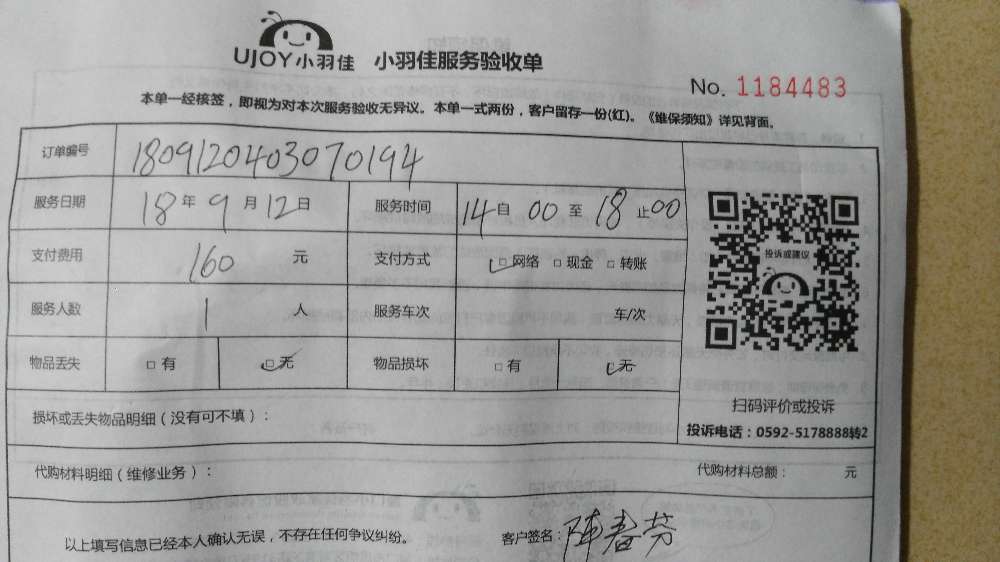 UJOY小羽佳 小羽佳服务验收单
No. 1184483
本单一经核签，即视为对本次服务验收无异议。本单一式两份，客户留存一份(红)。《维保须知》详见背面。
订单编号 1809120403070194
服务日期 18年9月12日 服务时间 14自00至18止00
支付费用 160 元 支付方式 网络 现金 转账
投诉或建议
服务人数 1 人 服务车次 车/次
物品丢失 有 无 物品损坏 有 无
扫码评价或投诉
损坏或丢失物品明细（没有可不填）：
投诉电话：0592-5178888转2
代购材料明细（维修业务）： 代购材料总额： 元
以上填写信息已经本人确认无误，不存在任何争议纠纷。 客户签名：陈春芬